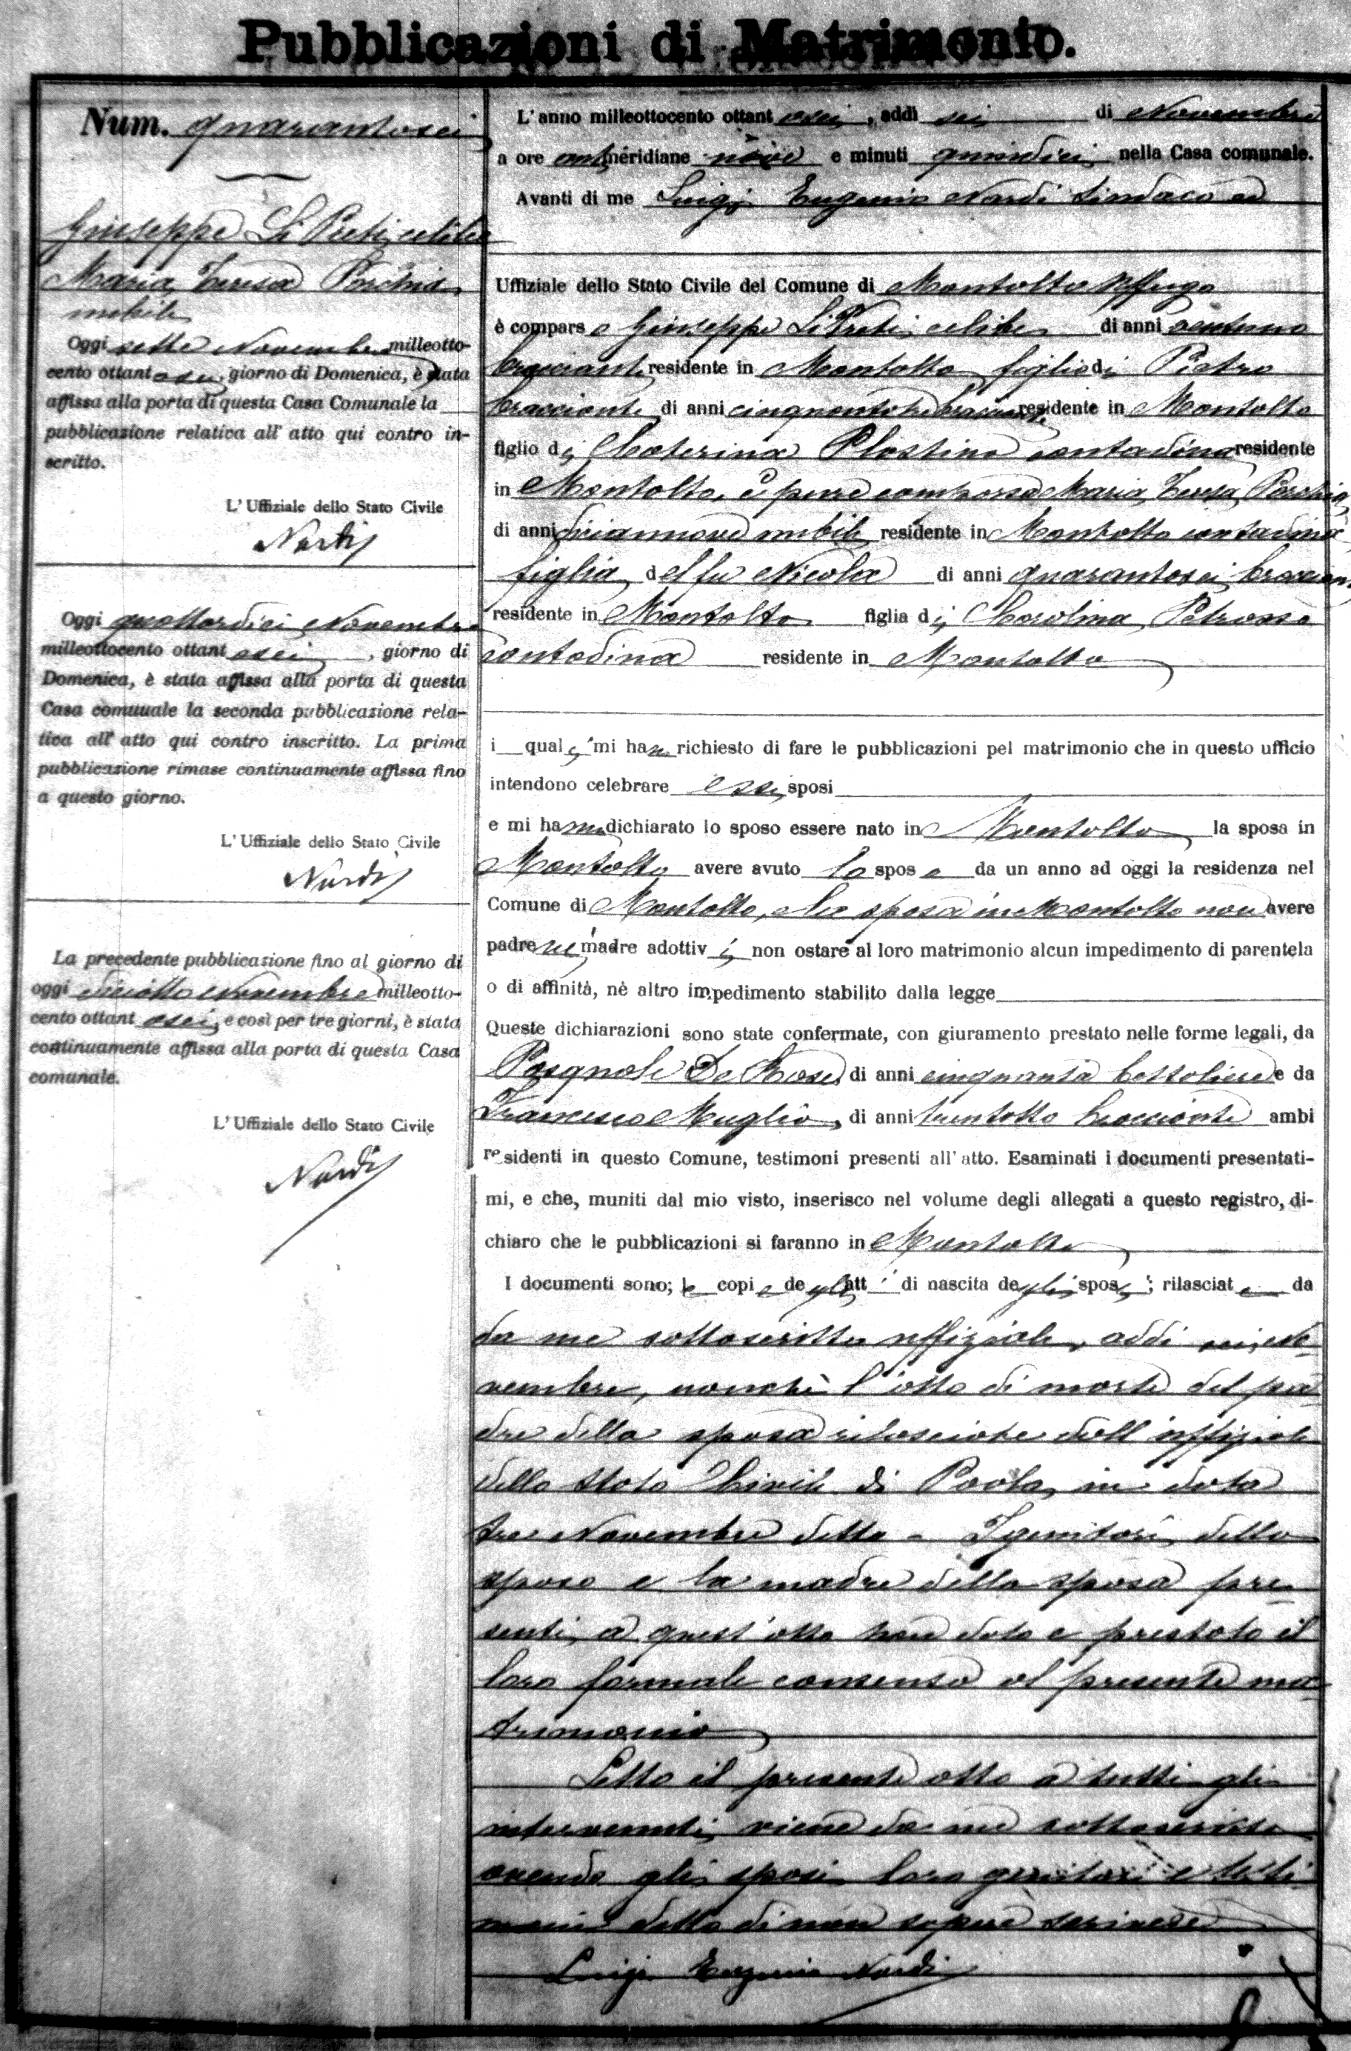 Pubblicazioni di Matrimonio.
Num. quarantasei
Giuseppe Li Preti celibe
Maria Teresa Porchia
nubile
Oggi sette Novembre milleotto-
cento ottantasei, giorno di Domenica, è stata
affissa alla porta di questa Casa Comunale la
pubblicazione relativa all' atto qui contro in-
scritto.
L' Uffiziale dello Stato Civile
Nardi
Oggi quattordici Novembre
milleottocento ottantasei, giorno di
Domenica, è stata affissa alla porta di questa
Casa comunale la seconda pubblicazione rela-
tiva all' atto qui contro inscritto. La prima
pubblicazione rimase continuamente affissa fino
a questo giorno.
L' Uffiziale dello Stato Civile
Nardi
La precedente pubblicazione fino al giorno di
oggi diciotto Novembre milleotto-
cento ottantasei, e così per tre giorni, è stata
continuamente affissa alla porta di questa Casa
comunale.
L' Uffiziale dello Stato Civile
Nardi
L' anno milleottocento ottantasei, addì sei di Novembre
a ore antimeridiane nove e minuti quindici nella Casa comunale.
Avanti di me Luigi Eugenio Nardi Sindaco ed
Uffiziale dello Stato Civile del Comune di Montalto Uffugo
è comparso Giuseppe Li Preti celibe di anni ventuno
bracciante residente in Montalto figlio di Pietro
bracciante di anni cinquantotto residente in Montalto
figlio di Caterina Plastina contadina residente
in Montalto, è pure comparsa Maria Teresa Porchia
di anni diciannove nubile residente in Montalto contadina
figlia del fu Nicola di anni quarantasei bracciante
residente in Montalto figlia di Carolina Petrassi
contadina residente in Montalto
i quali mi han richiesto di fare le pubblicazioni pel matrimonio che in questo ufficio
intendono celebrare essi sposi
e mi hanno dichiarato lo sposo essere nato in Montalto la sposa in
Montalto avere avuto lo sposo da un anno ad oggi la residenza nel
Comune di Montalto, la sposa in Montalto non avere
padre nè madre adottivi non ostare al loro matrimonio alcun impedimento di parentela
o di affinità, nè altro impedimento stabilito dalla legge
Queste dichiarazioni sono state confermate, con giuramento prestato nelle forme legali, da
Pasquale De Rose di anni cinquanta bettoliere e da
Francesco Muglia, di anni trentotto bracciante ambi
residenti in questo Comune, testimoni presenti all' atto. Esaminati i documenti presentati-
mi, e che, muniti dal mio visto, inserisco nel volume degli allegati a questo registro, di-
chiaro che le pubblicazioni si faranno in Montalto
I documenti sono; le copie degli atti di nascita degli sposi; rilasciate da
da me sottoscritto uffiziale, addì sei No-
vembre, nonchè l'atto di morte del pa-
dre della sposa rilasciate dall'uffiziale
dello Stato Civile di Paola, in data
tre Novembre detto - I genitori dello
sposo e la madre della sposa pre-
senti a quest'atto han dato e prestato il
loro formale consenso al presente ma-
trimonio
Letto il presente atto a tutti gli
intervenuti viene da me sottoscritto
avendo gli sposi loro genitori e testi-
moni detto di non sapere scrivere
Luigi Eugenio Nardi